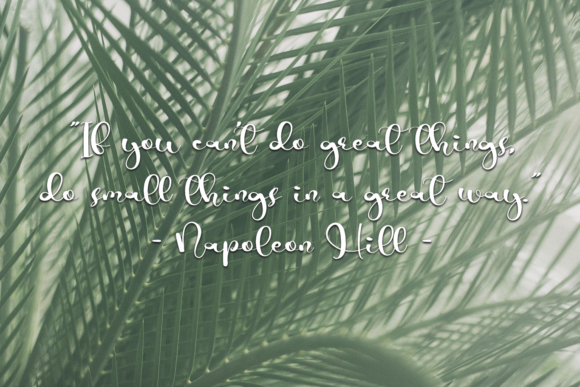 "If you can't do great things,
do small things in a great way."
- Napoleon Hill -